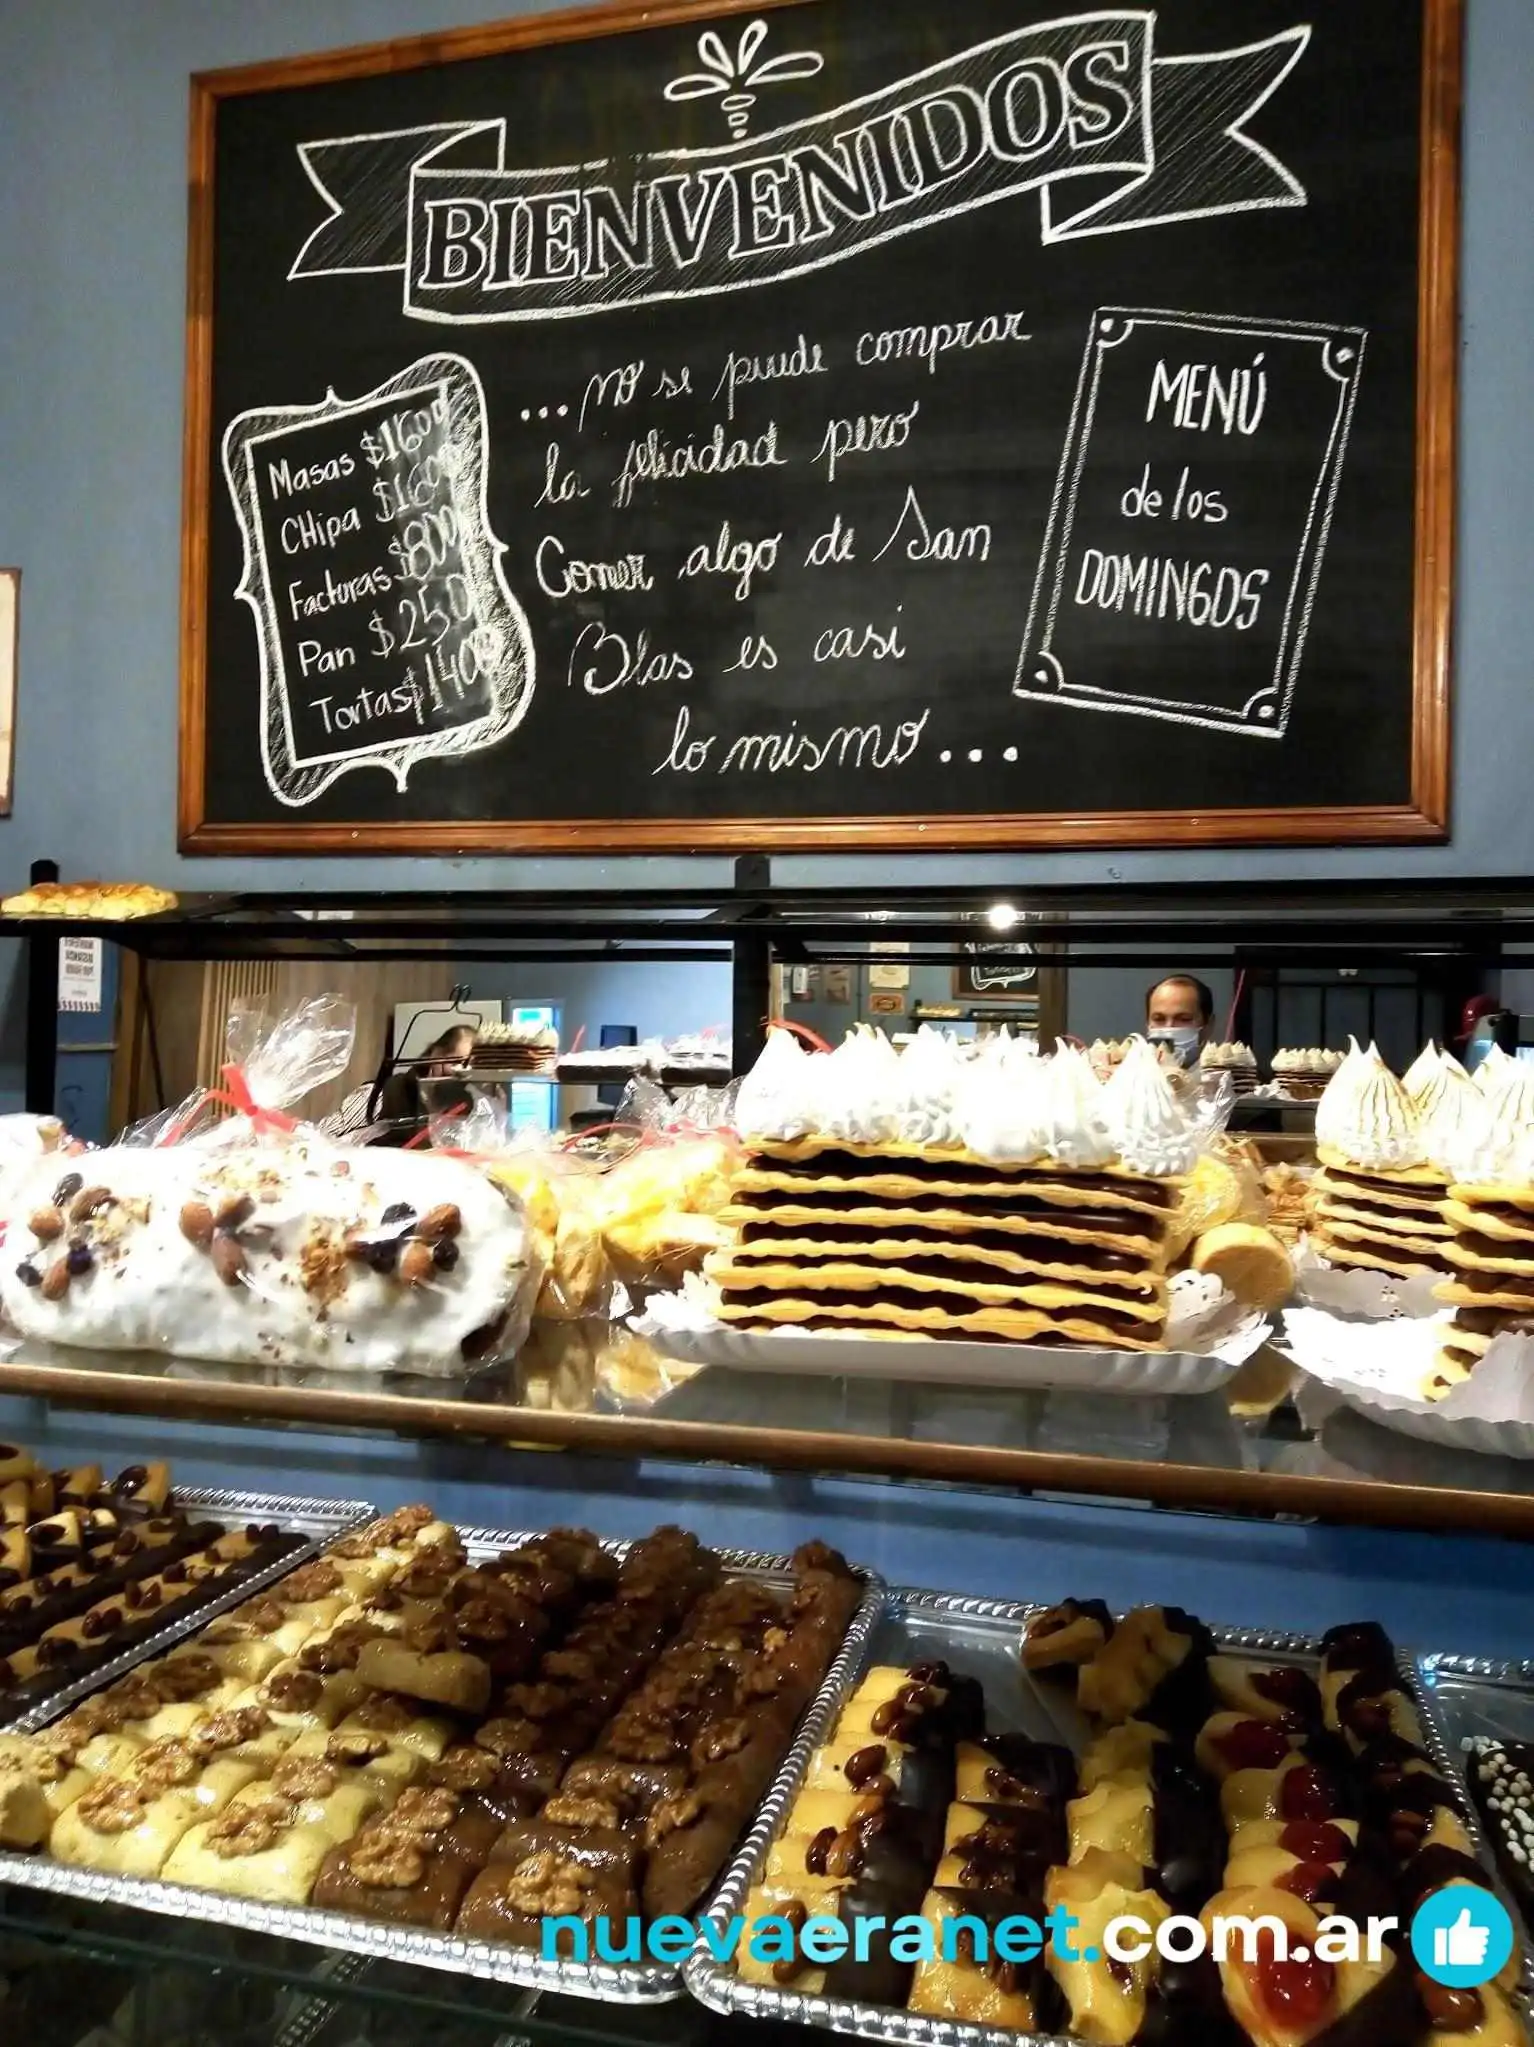 BIENVENIDOS
Masas $1600
CHipa $1600
Facturas $800
Pan $250
Tortas $1400
... no se puede comprar
la felicidad pero
Comer algo de San
Blas es casi
lo mismo...
MENÚ
de los
DOMINGOS
nuevaeranet.com.ar